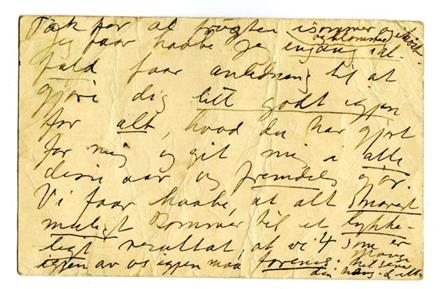 Tak for al
Jeg faar haabe jeg engang i al-
fald faar anledning til at
gjøre dig litt godt igjen
for alt, hvad du har gjort
for mig og git mig i alle
disse aar og fremdeles gjør.
Vi faar haabe, at alt snarest
muligt kommer til et lykke-
ligt resultat, at vi 4 som er
igjen av os igjen maa forenes.